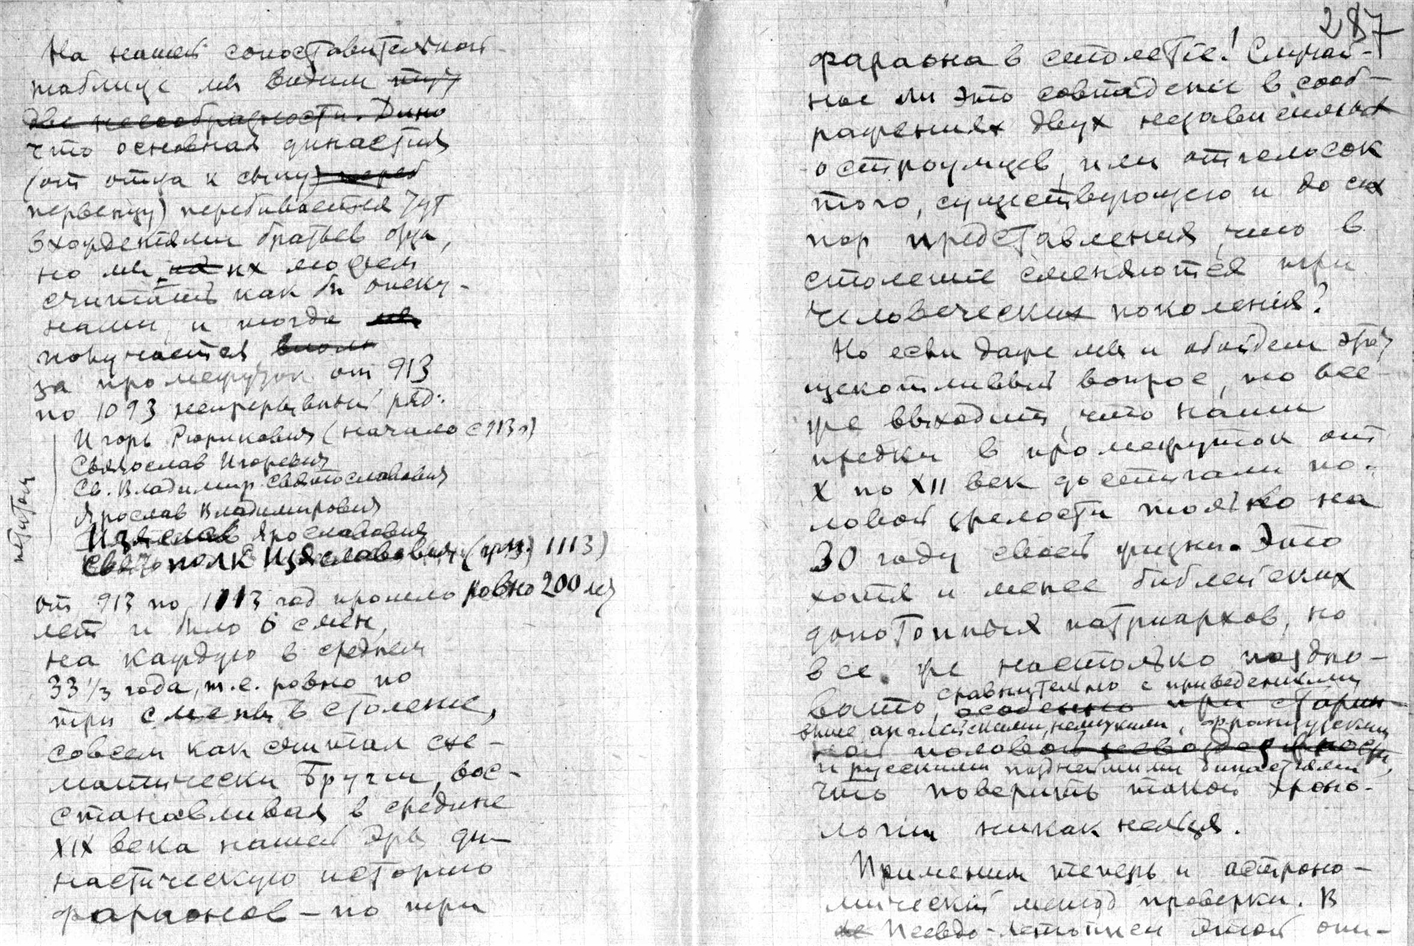 На нашей сопоставительной
таблице мы видим тут
две несообразности. Дино
что основная династия
(от отца к сыну) через
первенцу) перебивается тут
эхордектами братьев отца,
но мы на их можем
считать как бы опеку-
нами, и тогда мы
получается вполн
за промежуток от 913
по 1093 непрерывный ряд:
Игорь Рюрикович (начало с 913 г)
Святослав Игоревич
Св. Владимир Святославович
Ярослав Владимирович
Изяслав Ярославович
Святополк Изяславович (1113)
петитом
от 913 по 1113 год прошло ровно 200 лет
лет и было 6 смен,
на каждую в среднем
33 1/3 года, т.е. ровно по
три смены в столетие,
совсем как считал схе-
матически Бругш, вос-
станавливая в средине
XIX века нашей эры ди-
настическую историю
фараонов – по три
287
фараона в столетье! Случай-
ное ли это совпадение в сооб-
ражениях двух независимых
остроумцев, или отголосок
того, существующего и до сих
пор представления, что в
столетие сменяются три
человеческих поколения?
Но если даже мы и обойдем этот
щекотливый вопрос, то все-
же выходит, что наши
предки в промежуток от
X по XII век достигали по-
ловой зрелости только на
30 году своей жизни. Это
хотя и менее библейских
допотопных патриархов, но
все же настолько поздно-
вато, сравнительно с приведенными
особенно при старин-
выше английскими, немецкими, французскими
ной половой
и русскими позднейшими династиями
что поверить такой хроно-
логии никак нельзя.
Применим теперь и астроно-
мический метод проверки. В
не Псевдо-летописи этой опи-